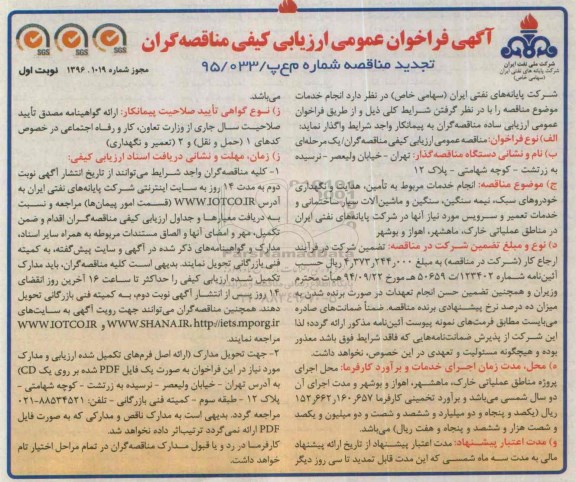 آگهی فراخوان عمومی ارزیابی کیفی مناقصه‌گران
تجدید مناقصه شماره م‌ع‌پ/۹۵/۰۳۳
مجوز شماره ۱۰۱۹ . ۱۳۹۶
نوبت اول
شرکت ملی نفت ایران
شرکت پایانه های نفتی ایران
(سهامی خاص)
SGS
SGS
SGS
شرکت پایانه‌های نفتی ایران (سهامی خاص) در نظر دارد انجام خدمات
موضوع مناقصه را با در نظر گرفتن شرایط کلی ذیل و از طریق فراخوان
عمومی ارزیابی ساده مناقصه‌گران به پیمانکار واجد شرایط واگذار نماید:
الف) نوع فراخوان: مناقصه عمومی ارزیابی کیفی مناقصه‌گران/یک مرحله‌ای
ب) نام و نشانی دستگاه مناقصه‌گذار: تهران - خیابان ولیعصر - نرسیده
به زرتشت - کوچه شهامتی - پلاک ۱۲
ج) موضوع مناقصه: انجام خدمات مربوط به تأمین، هدایت و نگهداری
خودروهای سبک، نیمه سنگین، سنگین و ماشین‌آلات سیار ساختمانی و
خدمات تعمیر و سرویس مورد نیاز آنها در شرکت پایانه‌های نفتی ایران
در مناطق عملیاتی خارک، ماهشهر، اهواز و بوشهر
د) نوع و مبلغ تضمین شرکت در مناقصه: تضمین شرکت در فرآیند
ارجاع کار (شرکت در مناقصه) به مبلغ ۴٫۳۷۳٫۲۴۴٫۰۰۰ ریال حسب
آئین‌نامه شماره ۱۲۳۴۰۲/ت ۵۰۶۵۹ هـ مورخ ۹۴/۰۹/۲۲ هیأت محترم
وزیران و همچنین تضمین حسن انجام تعهدات در صورت برنده شدن به
میزان ده درصد نرخ پیشنهادی برنده مناقصه. ضمناً ضمانت‌های صادره
می‌بایست مطابق فرمت‌های نمونه پیوست آئین‌نامه مذکور ارائه گردد؛ لذا
این شرکت از پذیرش ضمانت‌نامه‌هایی که فاقد شرایط فوق باشد معذور
بوده و هیچگونه مسئولیت و تعهدی در این خصوص، نخواهد داشت.
ه) محل، مدت زمان اجرای خدمات و برآورد کارفرما: محل اجرای
پروژه مناطق عملیاتی خارک، ماهشهر، اهواز و بوشهر و مدت اجرای آن
دو سال شمسی می‌باشد و برآورد تخمینی کارفرما ۱۵۲٫۶۶۲٫۱۶۰٫۶۵۷
ریال (یکصد و پنجاه و دو میلیارد و ششصد و شصت و دو میلیون و یکصد
و شصت هزار و ششصد و پنجاه و هفت ریال) می‌باشد.
و) مدت اعتبار پیشنهاد: مدت اعتبار پیشنهاد از تاریخ ارائه پیشنهاد
مالی به مدت سه ماه شمسی که این مدت قابل تمدید تا سی روز دیگر
می‌باشد.
ز) نوع گواهی تأیید صلاحیت پیمانکار: ارائه گواهینامه مصدق تأیید
صلاحیت سال جاری از وزارت تعاون، کار و رفاه اجتماعی در خصوص
کدهای ۱ (حمل و نقل) و ۲ (تعمیر و نگهداری)
ژ) زمان، مهلت و نشانی دریافت اسناد ارزیابی کیفی:
۱- کلیه مناقصه‌گران واجد شرایط می‌توانند از تاریخ انتشار آگهی نوبت
دوم به مدت ۱۴ روز به سایت اینترنتی شرکت پایانه‌های نفتی ایران به
آدرس WWW.IOTCO.IR (قسمت امور پیمان‌ها) مراجعه و نسبت
به دریافت معیارها و جداول ارزیابی کیفی مناقصه‌گران اقدام و ضمن
تکمیل، مهر و امضای آنها و الصاق مستندات مربوطه به همراه سایر اسناد،
مدارک و گواهینامه‌های ذکر شده در آگهی و سایت پیش‌گفته، به کمیته
فنی بازرگانی تحویل نمایند. بدیهی است کلیه مناقصه‌گران، باید مدارک
تکمیل شده ارزیابی کیفی را حداکثر تا ساعت ۱۶ آخرین روز انقضای
۱۴ روز پس از انتشار آگهی نوبت دوم، به کمیته فنی بازرگانی تحویل
دهند. همچنین مناقصه‌گران می‌توانند جهت رویت آگهی به سایت‌های
WWW.SHANA.IR، http://iets.mporg.ir و WWW.IOTCO.IR
مراجعه نمایند.
۲- جهت تحویل مدارک (ارائه اصل فرم‌های تکمیل شده ارزیابی و مدارک
مورد نیاز در این فراخوان به صورت یک فایل PDF شده بر روی یک CD)
به آدرس تهران - خیابان ولیعصر - نرسیده به زرتشت - کوچه شهامتی -
پلاک ۱۲ - طبقه سوم - کمیته فنی بازرگانی - تلفن: ۸۸۵۳۴۵۲۱-۰۲۱
مراجعه گردد. بدیهی است به مدارک ناقص و مدارکی که به صورت فایل
PDF ارائه نمی‌گردد ترتیب‌اثر داده نخواهد شد.
کارفرما در رد و یا قبول مدارک مناقصه‌گران در تمام مراحل اختیار تام
خواهد داشت.